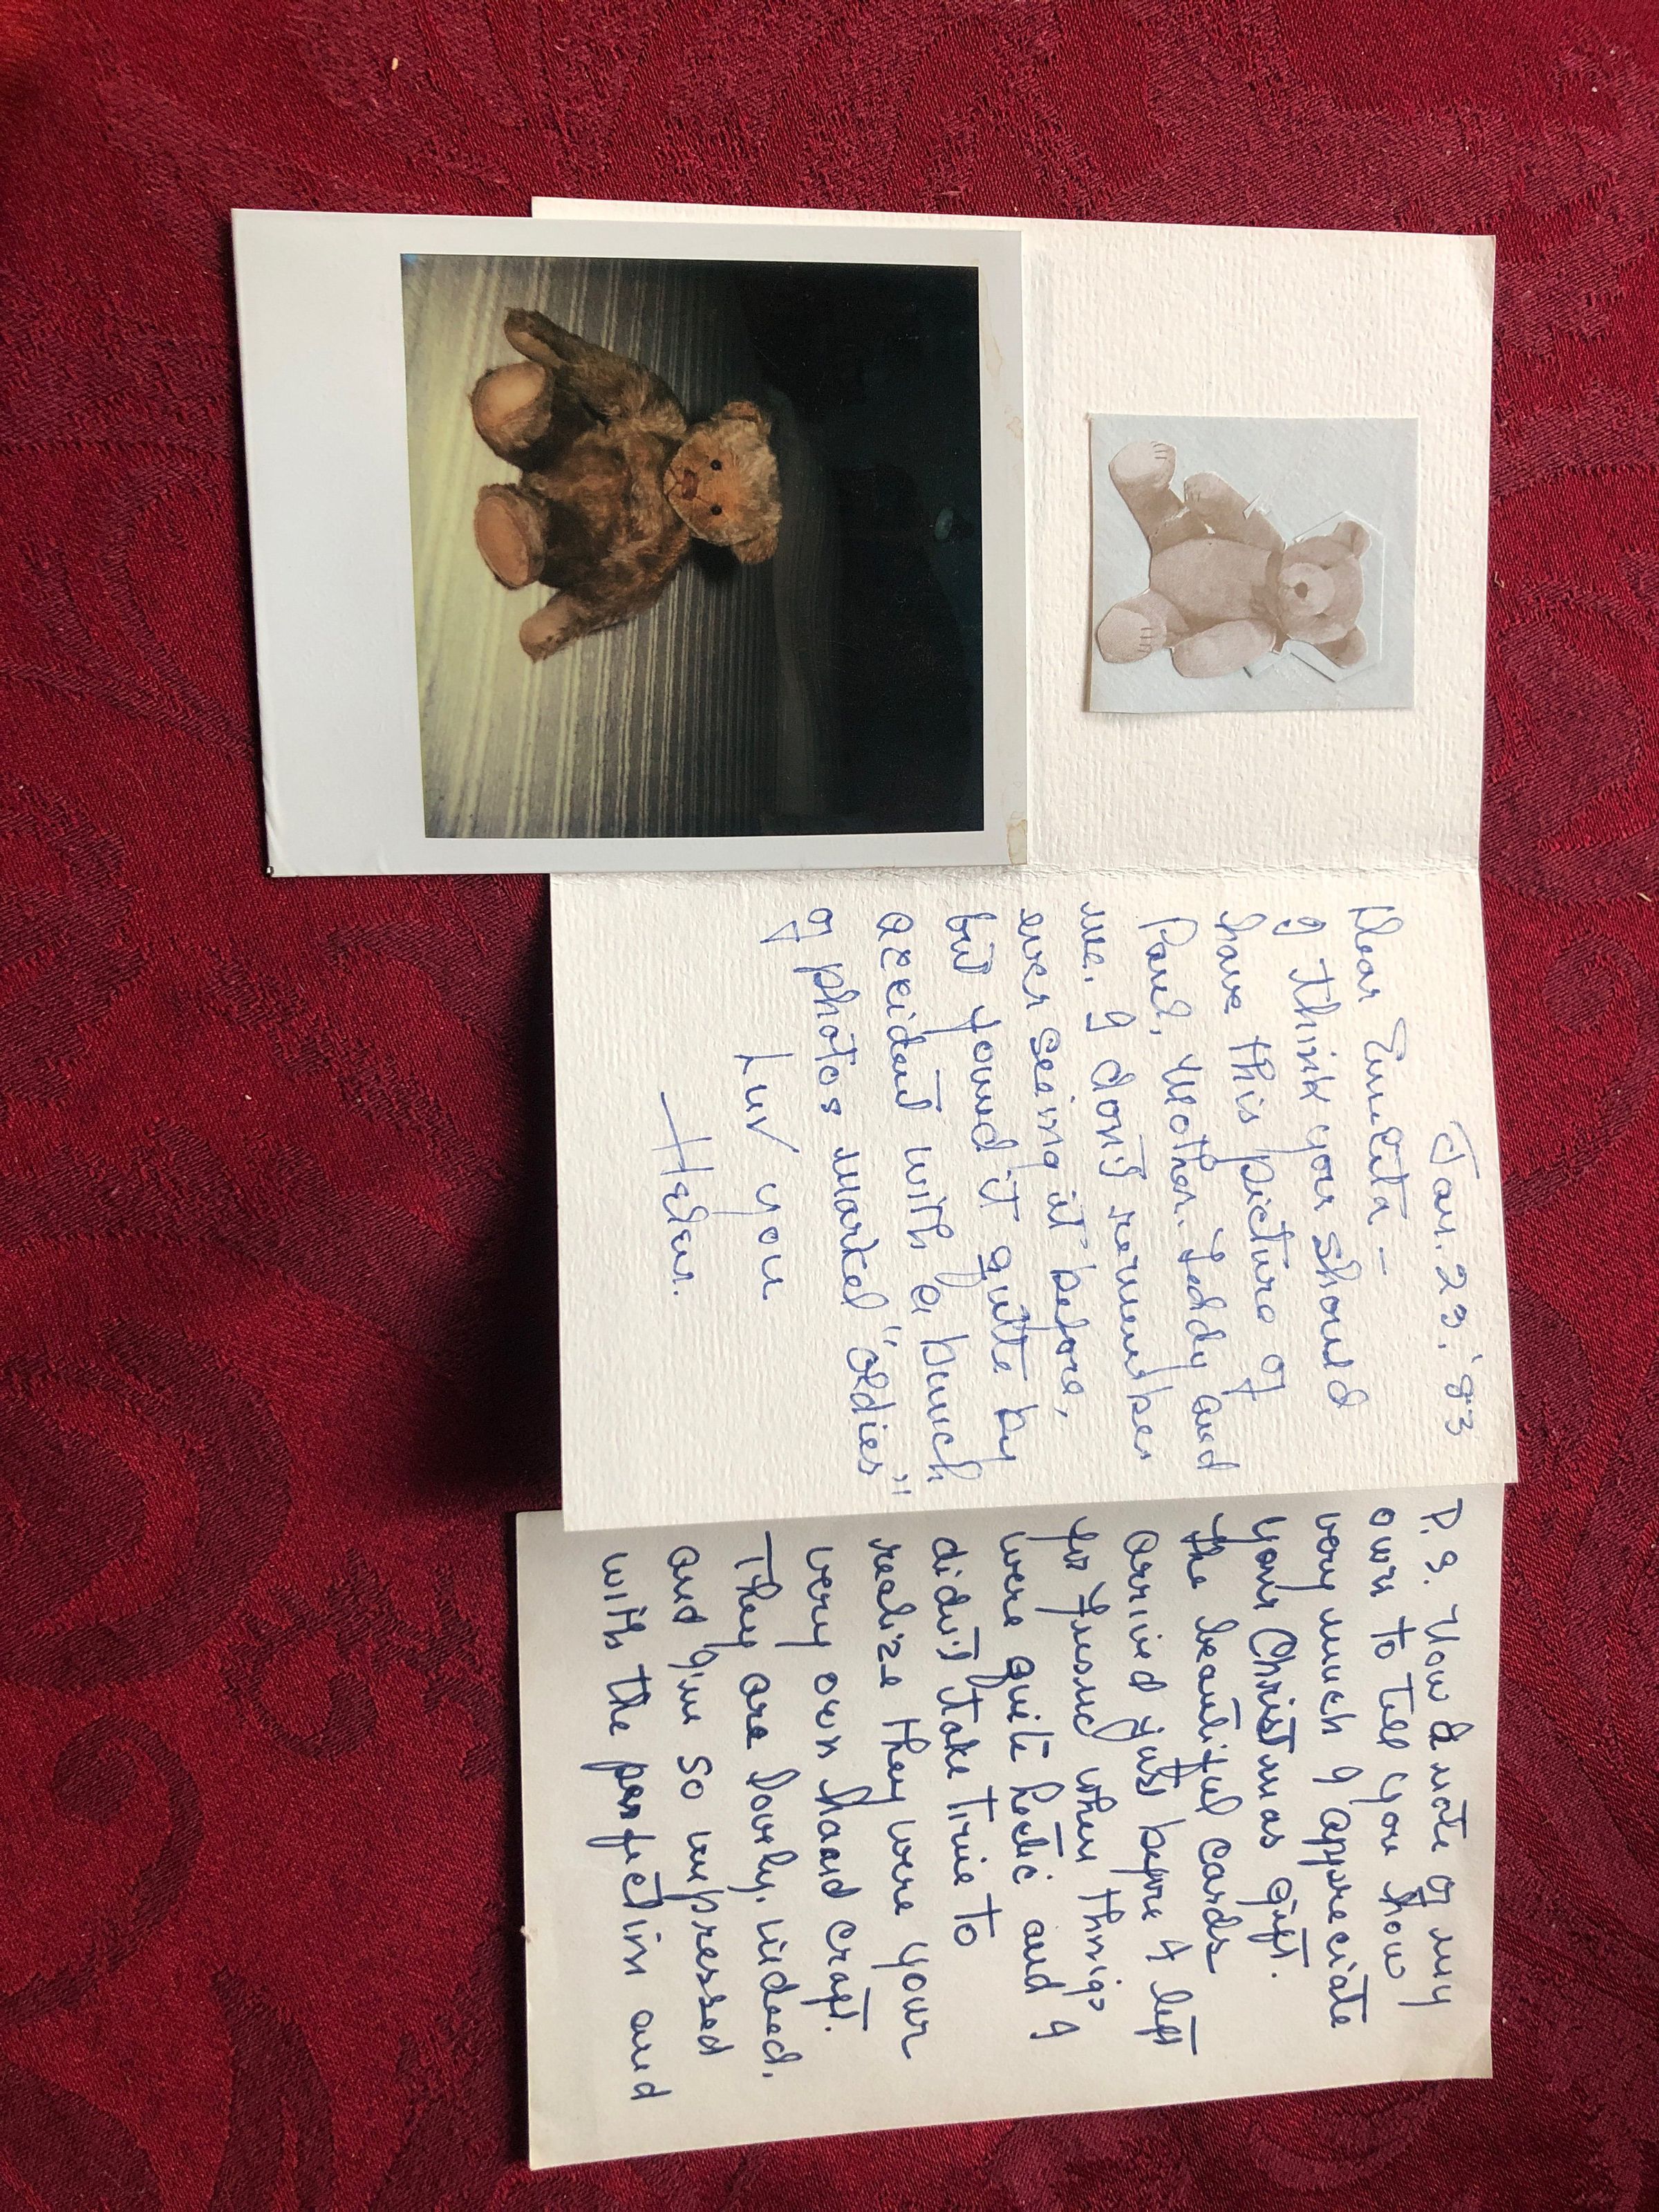 Jan. 23, '83
Dear
I think you should
have this picture of
Paul, Mother, Teddy and
me. I don't remember
ever seeing it before,
but found it quite by
accident with a bunch
of photos marked "oldies"
Luv you
Helen.
P.S. Now a note of my
own to tell you how
very much I appreciate
your Christmas gift.
The beautiful cards
arrived just before I left
for when things
were quite hectic and I
didn't take time to
realize they were your
very own hand craft.
They are lovely, indeed,
and I'm so impressed
with the perfection and